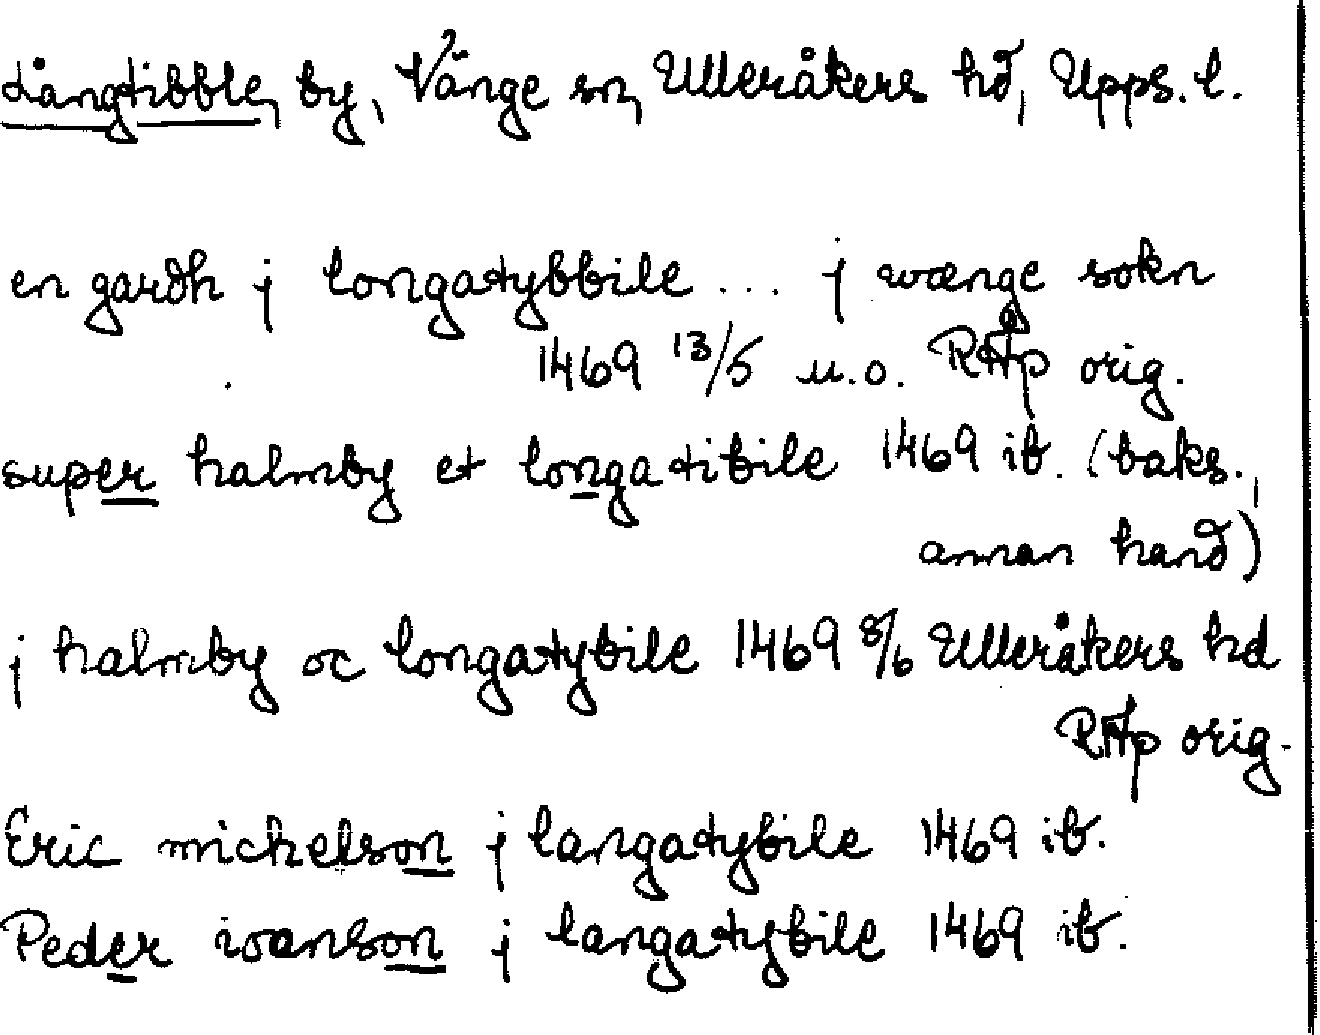 Långtibble, by, Vänge sn, Ulleråkers hd, Upps. l.
en gardh j longatybbile ... j wænge sokn
1469 13/5 u.o. RAp orig.
super halmby et longatibile 1469 ib. (baks.,
annan hand)
j halmby oc longatybile 1469 8/6 Ulleråkers hd
RAp orig.
Eric mickelson j langatybile 1469 ib.
Peder ivanson j langatybile 1469 ib.